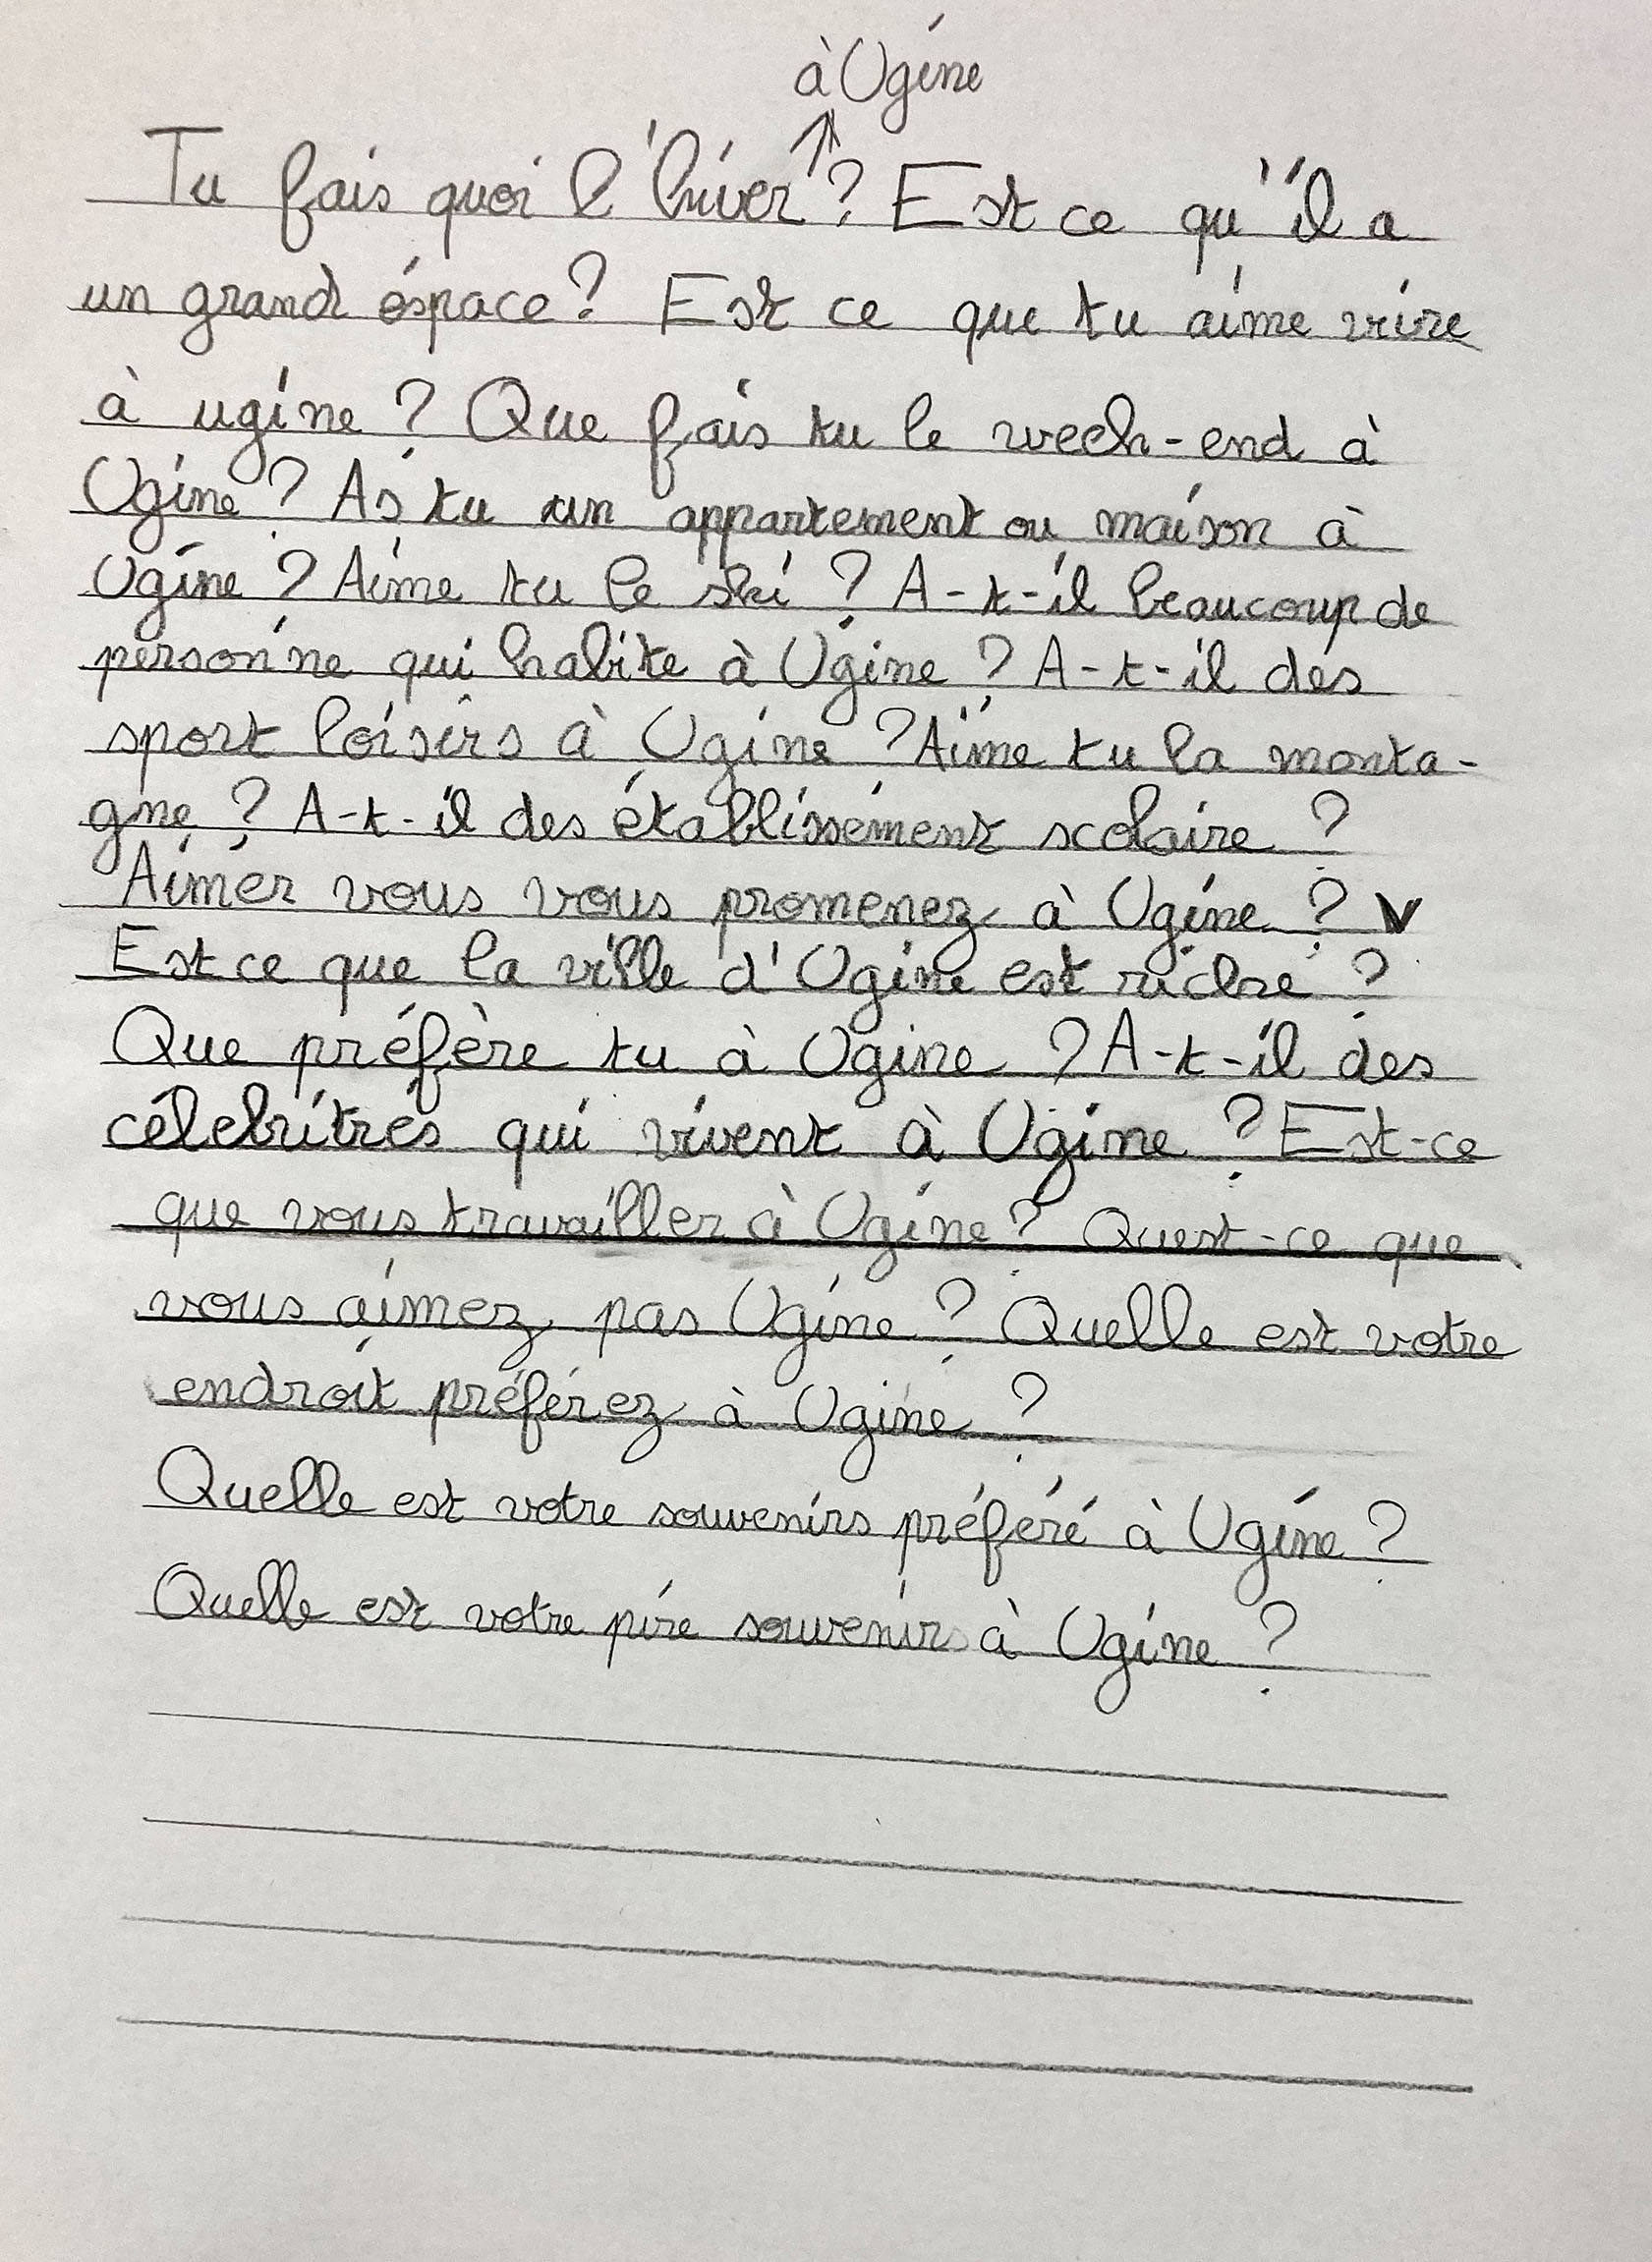 à Ugine
Tu fais quoi l'hiver ? Est ce qu'il a
un grand éspace ? Est ce que tu aime vivre
à ugine ? Que fais tu le weeh-end à
Ugine ? As tu un appartement ou maison à
Ugine ? Aime tu le ski ? A-t-il beaucoup de
personne qui habite à Ugine ? A-t-il des
sport loisirs à Ugine ? Aime tu la monta-
gne ? A-t-il des établissement scolaire ?
Aimer vous vous promenez à Ugine ?
Est ce que la ville d'Ugine est riche ?
Que préfère tu à Ugine ? A-t-il des
célebrítrés qui vivent à Ugine ? Est-ce
que vous travailler à Ugine ? Quest-ce que
vous aimez pas Ugine ? Quelle est votre
endroit préférez à Ugine ?
Quelle est votre souvenirs préféré à Ugine ?
Quelle est votre pire souvenirs à Ugine ?